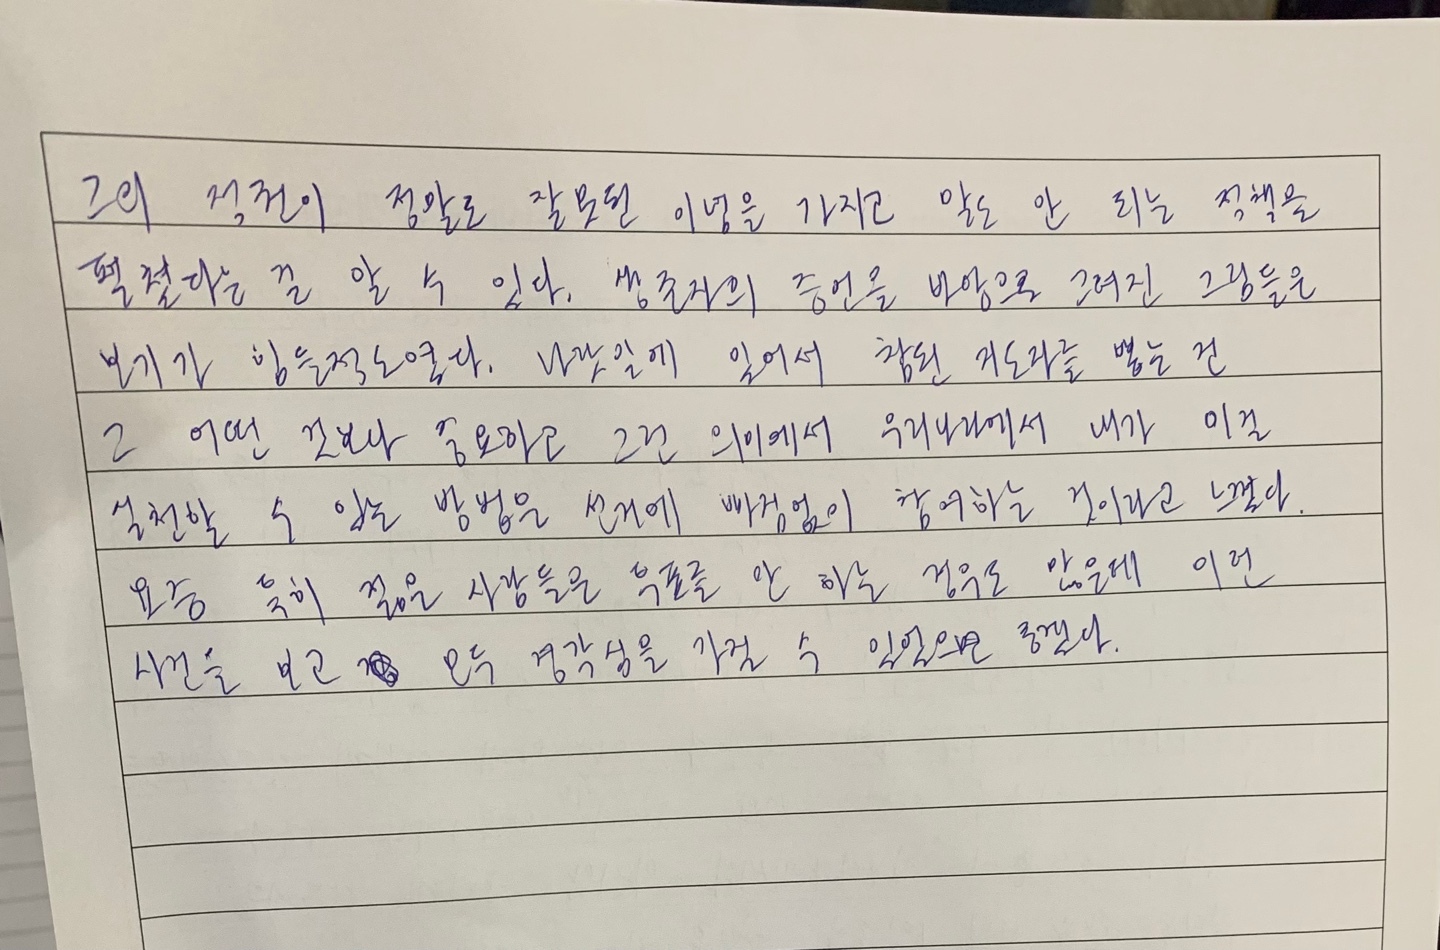 그의 정권이 정말로 잘못된 이념을 가지고 말도 안 되는 정책을
펼쳤다는 걸 알 수 있다. 생존자의 증언을 바탕으로 그려진 그림들은
보기가 힘들 정도였다. 나랏일에 있어서 참된 지도자를 뽑는 건
그 어떤 것보다 중요하고 그런 의미에서 우리나라에서 내가 이걸
실천할 수 있는 방법은 선거에 빠짐없이 참여하는 것이라고 느꼈다.
요즘 특히 젊은 사람들은 투표를 안 하는 경우도 많은데 이런
사건을 보고 모두 경각심을 가질 수 있었으면 좋겠다.